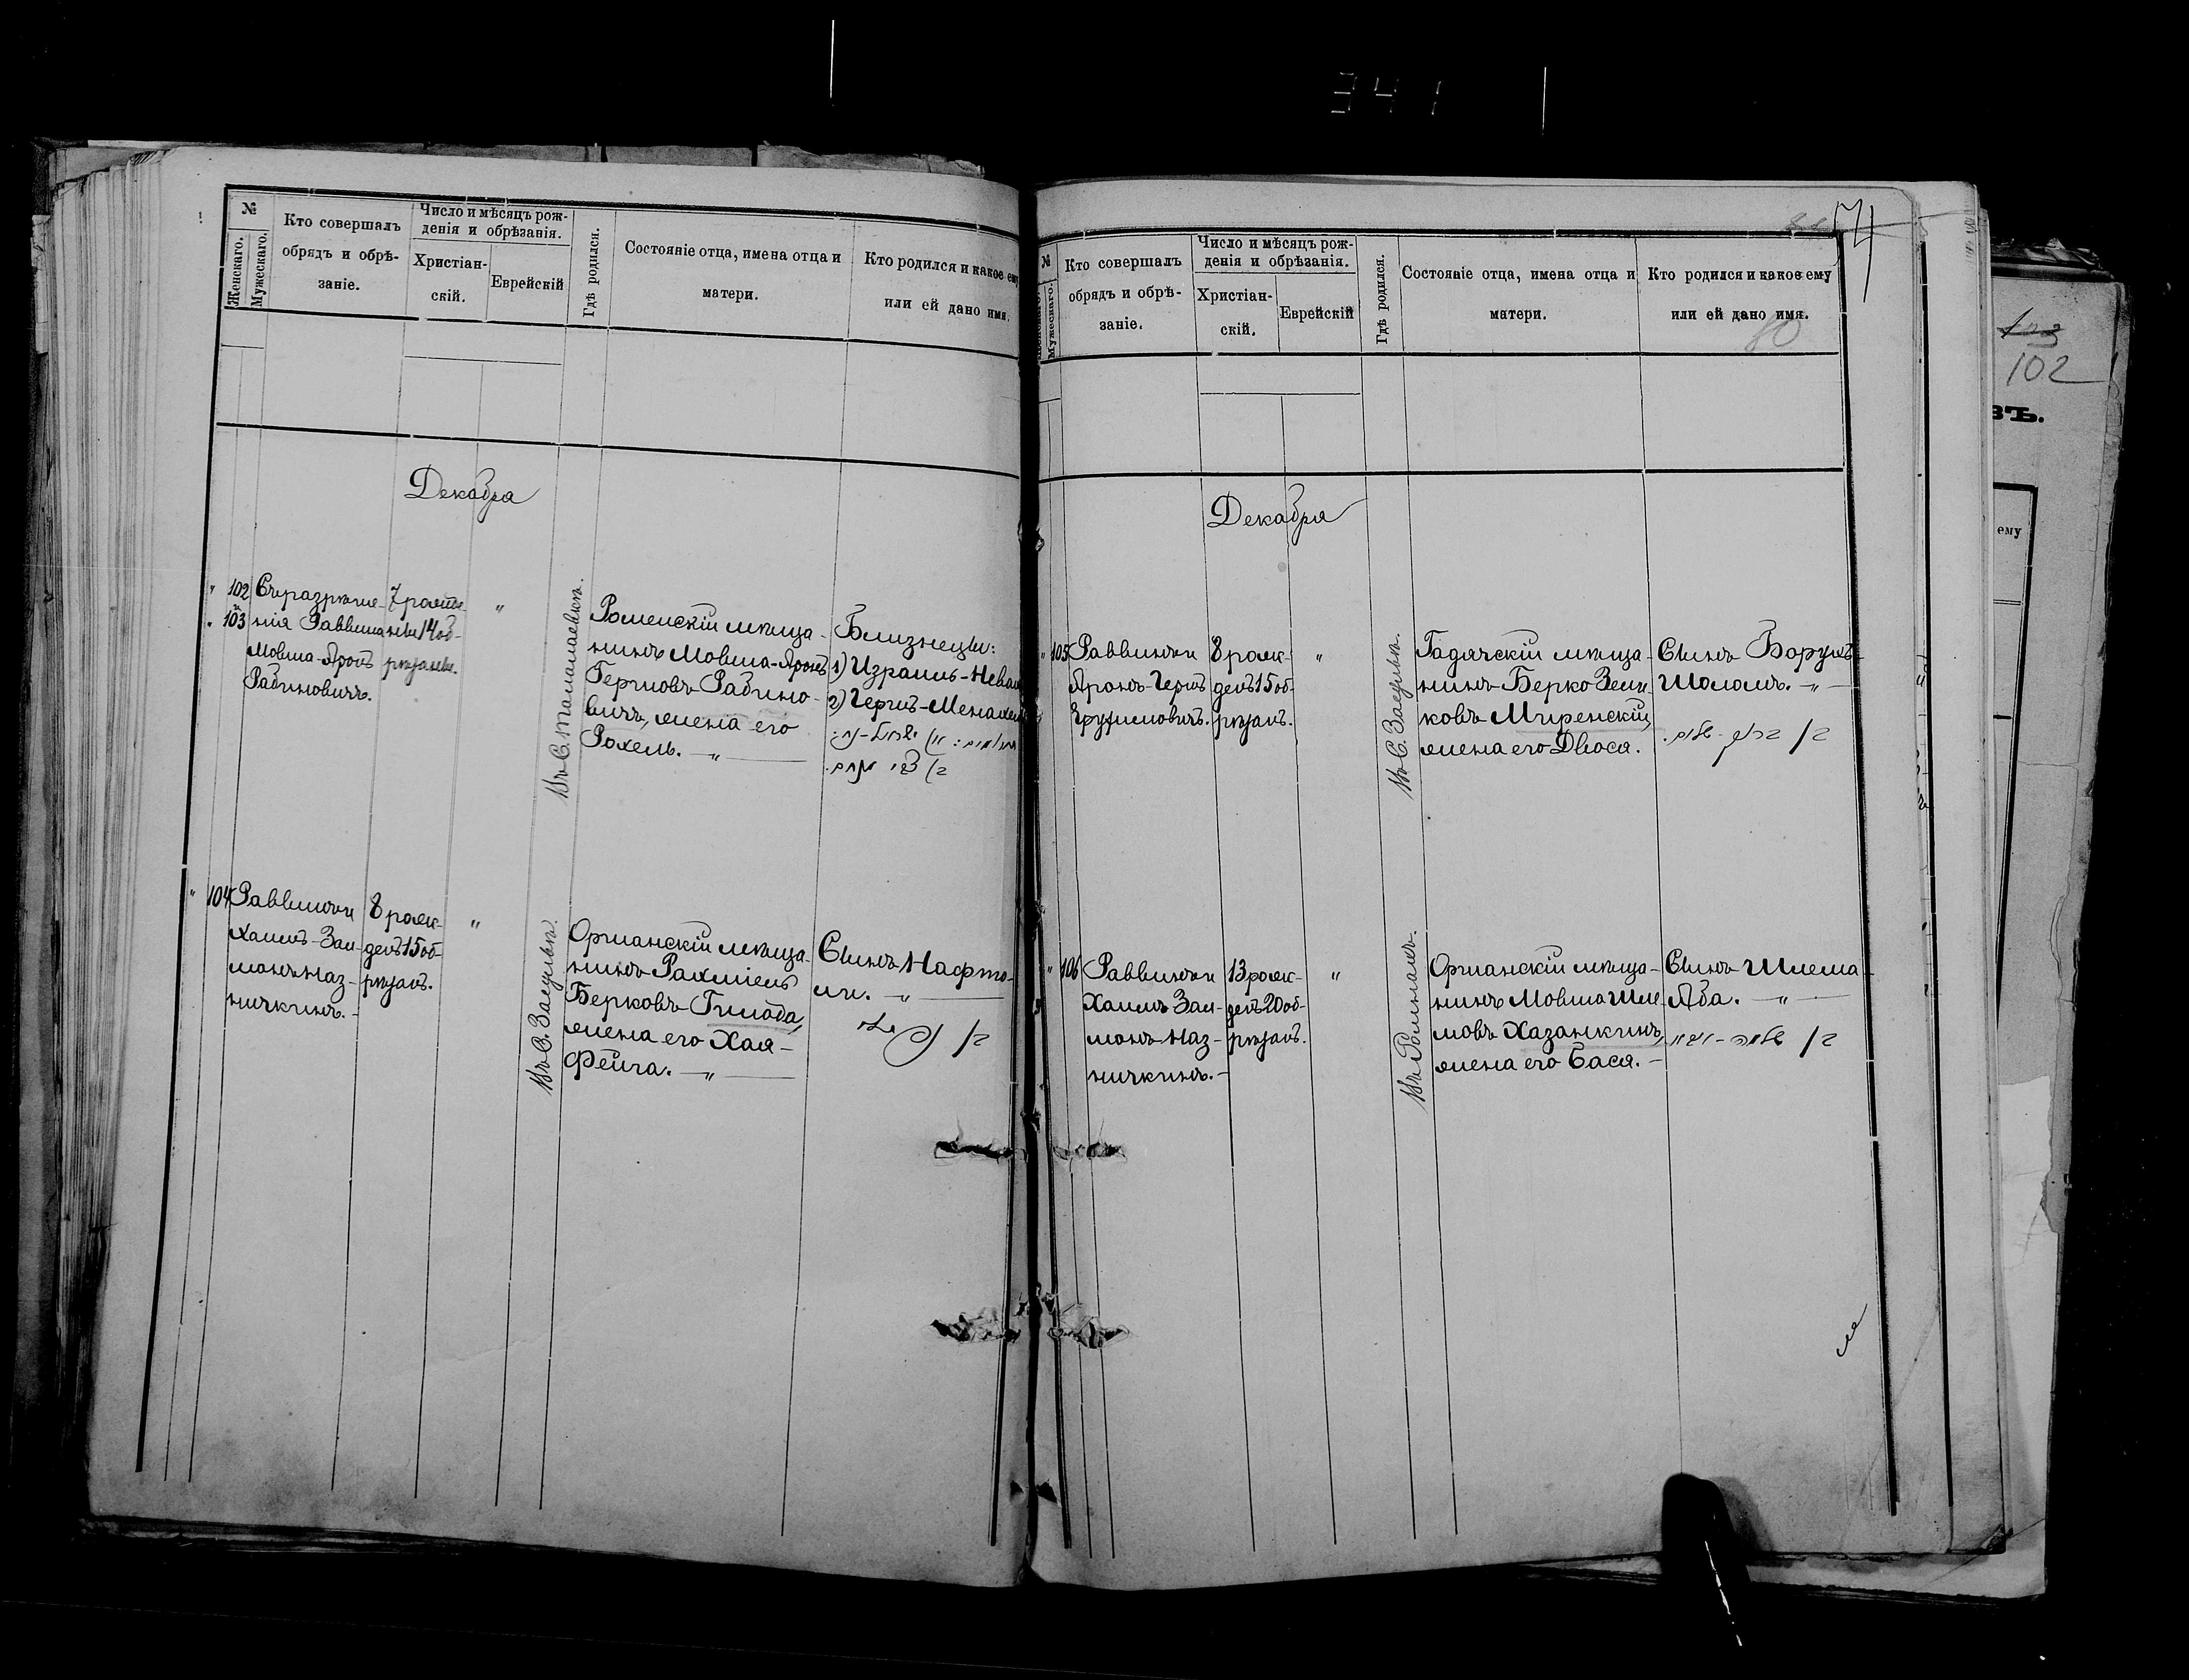 341
№
Женскаго.
Мужескаго.
Кто совершалъ
обрядъ и обрѣ-
заніе.
Число и мѣсяцъ рож-
денія и обрѣзанія.
Христіан-
скій.
Еврейскій
Гдѣ родился.
Состояніе отца, имена отца и
матери.
Кто родился и какое ему
или ей дано имя.
Декабря
" 102
и
" 103
Съ разрѣше-
нія Раввина
Мовша-Аронъ
Рабиновичъ.
7 рожде-
ны 14 об-
рѣзаны.
"
Въ С. Талалаевкѣ.
Роменскій мѣща-
нинъ Мовша-Аронъ
Гершовъ Рабино-
вичъ, жена его
Рохель. — " —
Близнецы:
1) Израиль-Невах
2) Гершъ-Менахем
" 104
Раввинъ и
Хаимъ-Зал-
манъ Наз-
ничкинъ. -
8 рож-
денъ 15 об-
рѣзанъ.
"
Въ С. Засульѣ.
Оршанскій мѣща-
нинъ Рахміель
Берковъ Гинода,
жена его Хая-
Фейга. — " —
Сынъ Нафто-
ли. — " —
74
80
№
Мужескаго.
Кто совершалъ
обрядъ и обрѣ-
заніе.
Число и мѣсяцъ рож-
денія и обрѣзанія.
Христіан-
скій.
Еврейскій
Гдѣ родился.
Состояніе отца, имена отца и
матери.
Кто родился и какое ему
или ей дано имя.
Декабря
" 105
Раввинъ и
Аронъ-Гершъ
Ерухимовичъ.
8 рож-
денъ 15 об-
рѣзанъ.
"
Въ С. Засульѣ.
Гадячскій мѣща-
нинъ Берко Зели-
ковъ Миренскій,
жена его Двося.
Сынъ Борухъ-
Шоломъ. — " —
ז/ ברוך - שלום.
" 106
Раввинъ и
Хаимъ Зал-
манъ Наз-
ничкинъ. -
13 рож-
денъ 20 об-
рѣзанъ.
"
Въ Ромнахъ.
Оршанскій мѣща-
нинъ Мовша Шле-
мовъ Хазанкинъ,
жена его Бася. -
Сынъ Шлема-
Аба. — " —
102
ВЪ.
ему